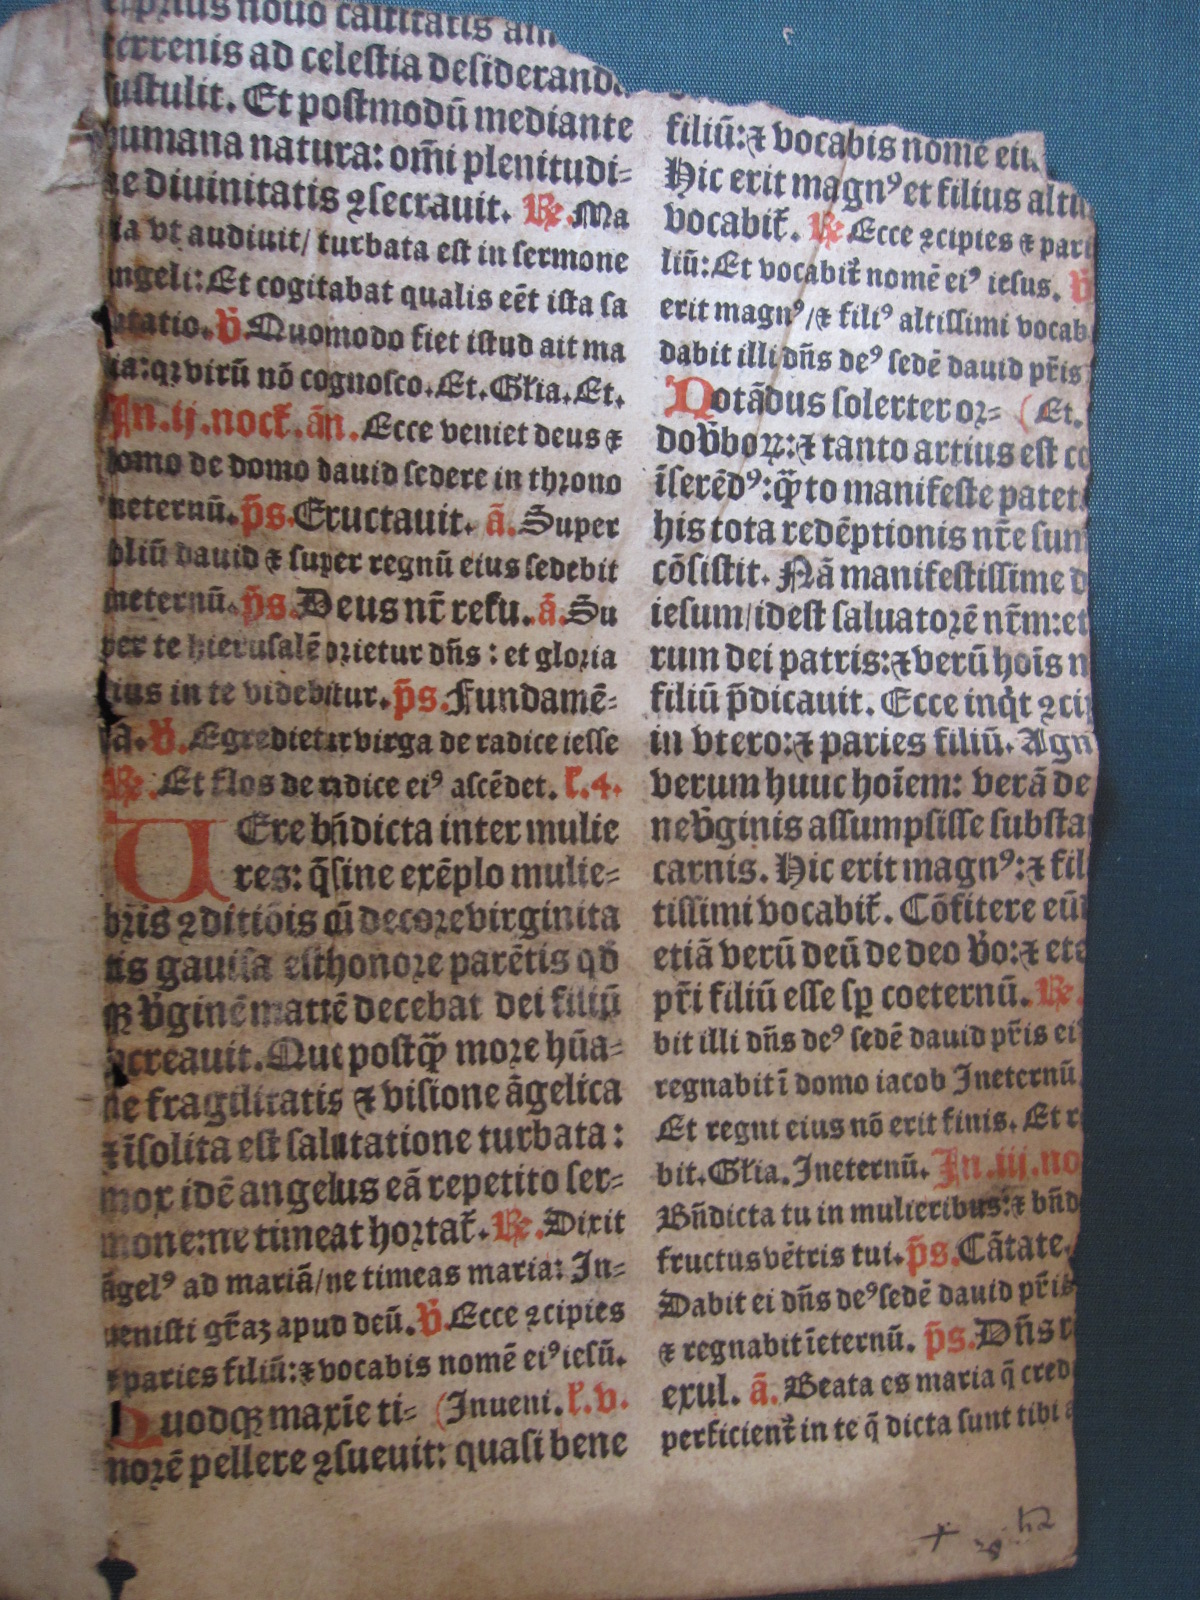 terrenis ad celestia desiderand
sustulit. Et postmodū mediante
humana natura: om̄i plenitudi⸗
ne diuinitatis ꝯsecrauit. ℟. Ma
ria vt audiuit/ turbata est in sermone
angeli: Et cogitabat qualis eēt ista sa
lutatio. ℣. Quomodo fiet istud ait ma
ria: qꝛ virū nō cognosco. Et. Gl̄ia. Et.
In. ij. noct̄. ān. Ecce veniet deus ⁊
homo de domo dauid sedere in throno
ineternū. p̄s. Eructauit. ā. Super
soliū dauid ⁊ super regnū eius sedebit
ineternū. p̄s. Deus nr̄ refu. ā. Su
per te hierusalē orietur dn̄s: et gloria
eius in te videbitur. p̄s. Fundamē⸗
tā. ℣. Egredietur virga de radice iesse
℟. Et flos de radice eiꝰ ascēdet. l̄. 4.
UEre bn̄dicta inter mulie
res: q̄ sine exēplo mulie⸗
bris ꝯditiōis cū decore virginita
tis gauisa est honore parētis qd̄
qꝫ v̄ginē matrē decebat dei filiū
ꝓcreauit. Que postq̄ꝫ more hūa⸗
ne fragilitatis ⁊ visione āgelica
⁊ īsolita est salutatione turbata:
mox idē angelus eā repetito ser⸗
mone: ne timeat hortat̄. ℟. Dixit
āgelꝰ ad mariā/ ne timeas maria: In⸗
uenisti gr̄aꝫ apud deū. ℣. Ecce ꝯcipies
⁊ paries filiū: ⁊ vocabis nomē eiꝰ iesū.
Quodqꝫ maxīe ti⸗ (Inueni. l̄. v.
norē pellere ꝯsueuit: quasi bene
filiū: ⁊ vocabis nomē eiꝰ
Hic erit magnꝰ et filius alti
vocabit̄. ℟. Ecce ꝯcipies ⁊ pari
liū: Et vocabit̄ nomē eiꝰ iesus. ℣
erit magnꝰ/ ⁊ filiꝰ altissimi vocab
dabit illi dn̄s deꝰ sedē dauid pr̄is
Notādus solerter or⸗ (Et.
do v̄boꝝ: ⁊ tanto artius est co
īserēdꝰ: q̄ꝫto manifeste patet.
his tota redēptionis nr̄e sum
cōsistit. Nā manifestissime d
iesum/ idest saluatorē nr̄m: et
rum dei patris: ⁊ verū hoīs m
filiū p̄dicauit. Ecce inq̇t ꝯci
in vtero: ⁊ paries filiū. Agn
verum hunc hoīem: verā de
ne v̄ginis assumpsisse substa
carnis. Hic erit magnꝰ: ⁊ fil
tissimi vocabit̄. Cōfitere eū
etiā verū deū de deo v̄o: ⁊ ete
pr̄i filiū esse sꝑ coeternū. ℟.
bit illi dn̄s deꝰ sedē dauid pr̄is ei
regnabit ī domo iacob Ineternū
Et regni eius nō erit finis. Et r
bit. Gl̄ia. Ineternū. In. iij. no
Bn̄dicta tu in mulieribus: ⁊ bn̄d
fructus vētris tui. p̄s. Cātate.
Dabit ei dn̄s deꝰ sedē dauid pr̄is
⁊ regnabit īeternū. p̄s. Dn̄s r
exul. ā. Beata es maria q̄ cred
perficient̄ in te q̄ dicta sunt tibi a